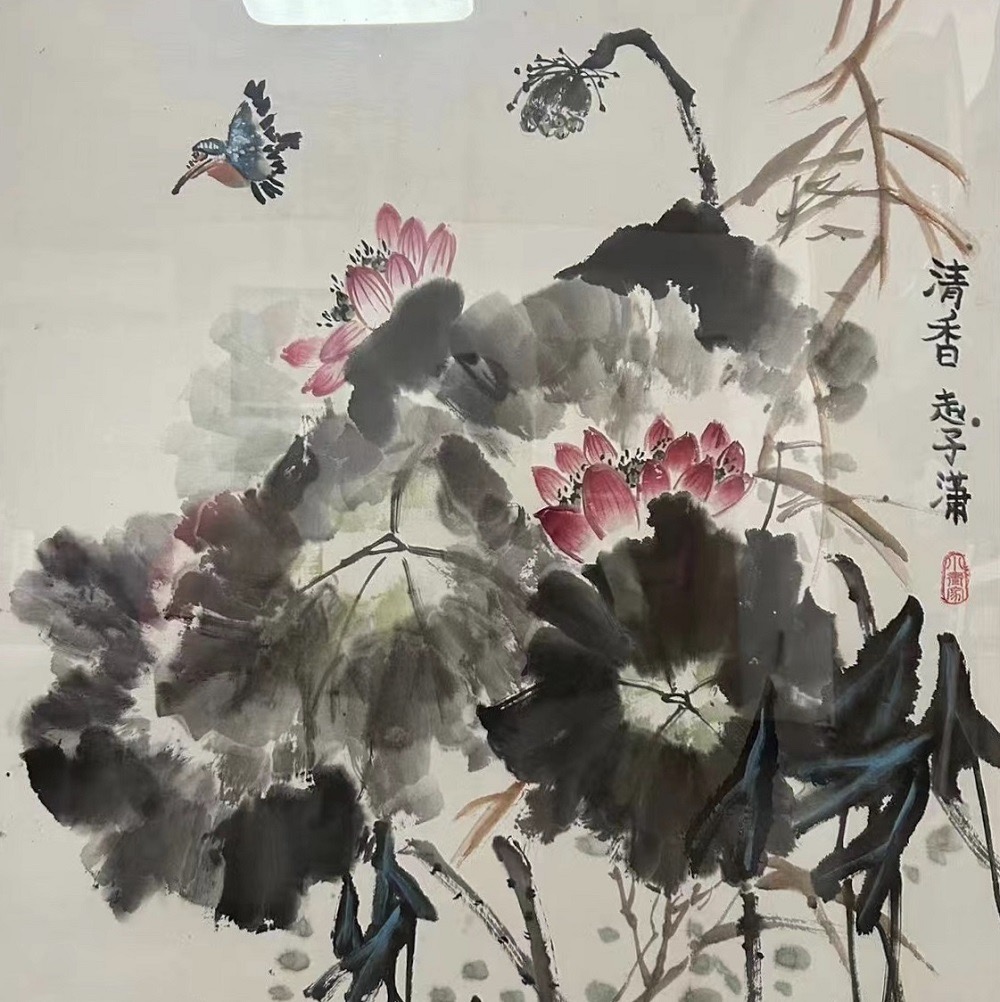 清香 赵子潇